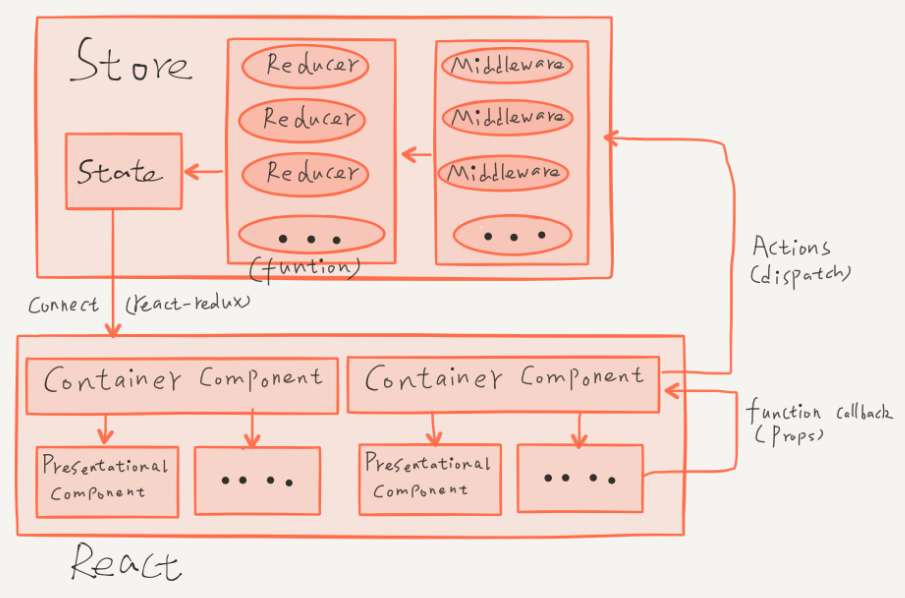 Store
Reducer
Reducer
Reducer
(funtion)
Middleware
Middleware
Middleware
State
Connect (react-redux)
Actions
(dispatch)
Container Component
Container Component
Presentational
Component
Presentational
Component
function callback
(Props)
React